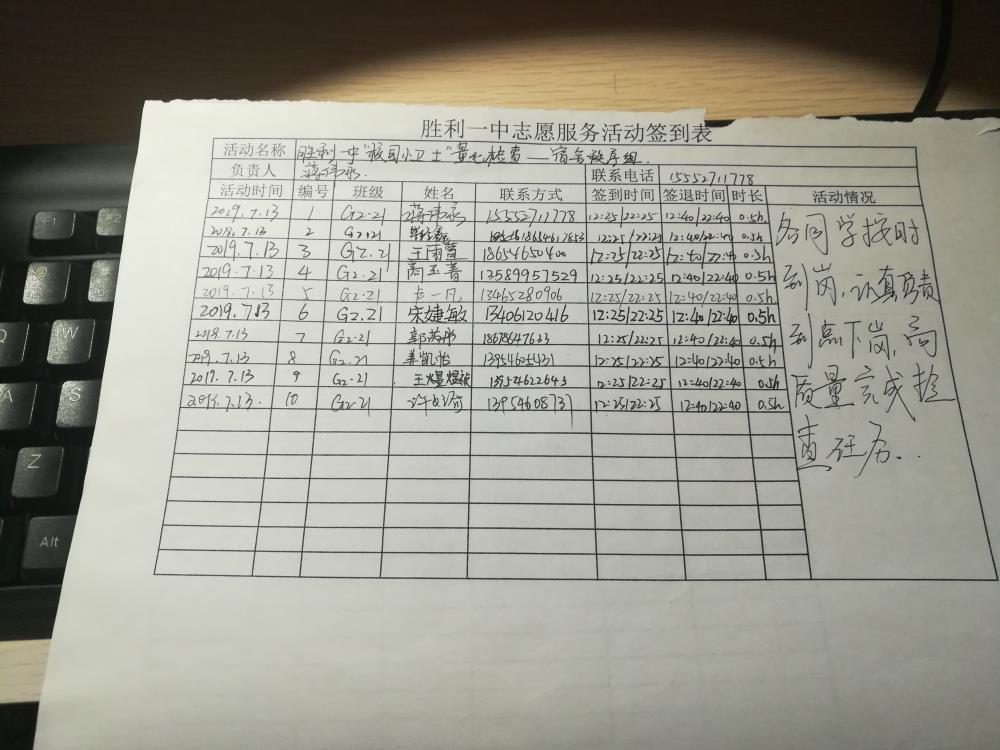 胜利一中志愿服务活动签到表
活动名称 胜利一中"校园小卫士"量化检查——宿舍秩序组.
负责人 联系电话 15552711778
活动时间 编号 班级 姓名 联系方式 签到时间 签退时间 时长 活动情况
2019.7.13 1 G2.21 15552711778 12:25/22:25 12:40/22:40 0.5h
2019.7.13 2 G2.21 12:25/22:25 12:40/22:40 0.5h
2019.7.13 3 G2.21 王雨萱 18654650400 12:25/22:25 12:40/22:40 0.5h
2019.7.13 4 G2.21 13589957529 12:25/22:25 12:40/22:40 0.5h
2019.7.13 5 G2.21 13465280906 12:25/22:25 12:40/22:40 0.5h
2019.7.13 6 G2.21 宋婕敏 13406120416 12:25/22:25 12:40/22:40 0.5h
2019.7.13 7 G2.21 12:25/22:25 12:40/22:40 0.5h
2019.7.13 8 G2.21 姜凯怡 12:25/22:25 12:40/22:40 0.5h
2019.7.13 9 G2.21 13954622643 12:25/22:25 12:40/22:40 0.5h
2019.7.13 10 G2.21 1395460873 12:25/22:25 12:40/22:40 0.5h
各同学按时
到岗,认真负责
到点下岗,高
质量完成检
查任务.
F1
F2
@
#
Q
W
A
S
Z
Alt